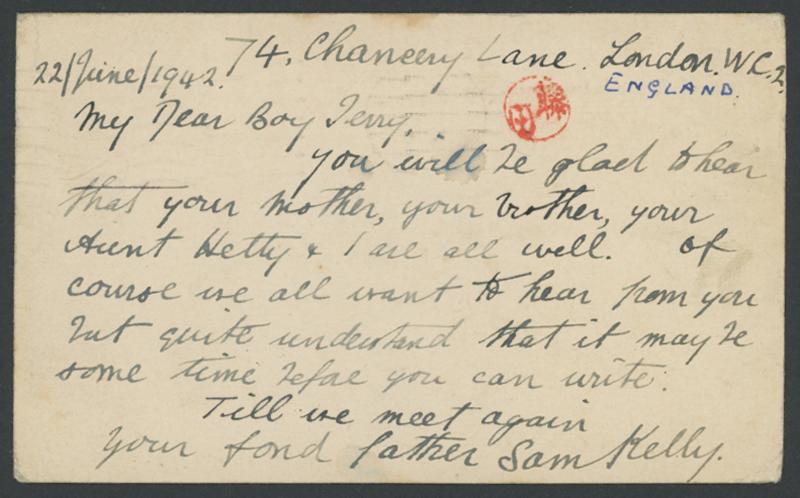 74, Chancery Lane. London. W.C.2.
22/June/1942.
ENGLAND.
My Dear Boy Terry,
you will be glad to hear
that your mother, your brother, your
Aunt Hetty & I are all well. Of
course we all want to hear from you
but quite understand that it may be
some time before you can write.
Till we meet again
Your fond father Sam Kelly.